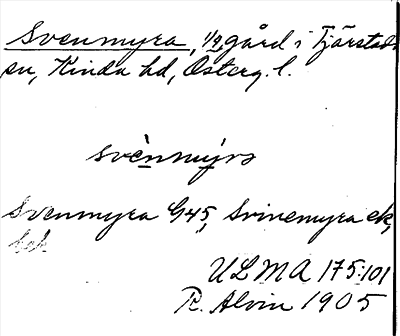 Svenmyra, 1/2 gård i Tjärstads
sn, Kinda hd, Österg. l.
svènmýrə
Svenmyra G45, Svinemyra ek,
ULMA 175:101
R. Alvin 1905